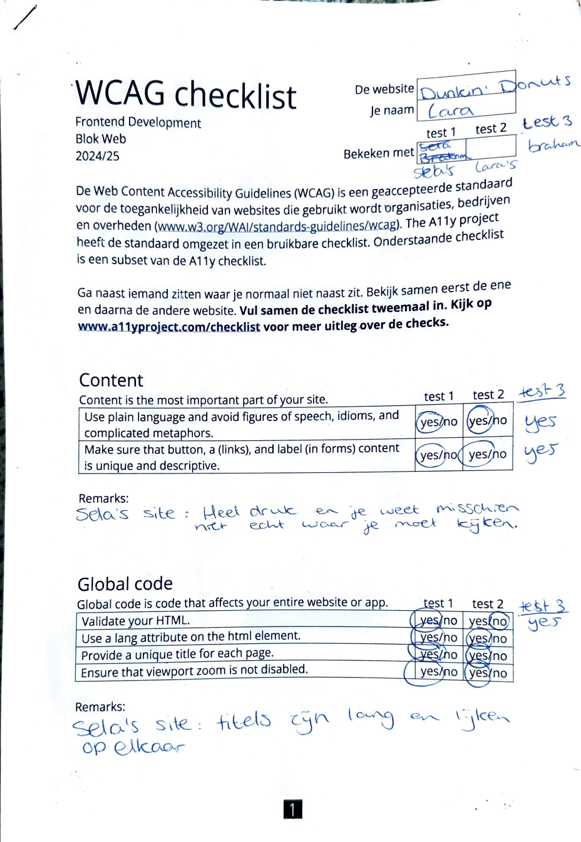 WCAG checklist
Frontend Development
Blok Web
2024/25
De website Dunkin' Donuts
Je naam Lara
test 1 test 2 test 3
Bekeken met Sela's Lara's braham
De Web Content Accessibility Guidelines (WCAG) is een geaccepteerde standaard
voor de toegankelijkheid van websites die gebruikt wordt organisaties, bedrijven
en overheden (www.w3.org/WAI/standards-guidelines/wcag). The A11y project
heeft de standaard omgezet in een bruikbare checklist. Onderstaande checklist
is een subset van de A11y checklist.
Ga naast iemand zitten waar je normaal niet naast zit. Bekijk samen eerst de ene
en daarna de andere website. Vul samen de checklist tweemaal in. Kijk op
www.a11yproject.com/checklist voor meer uitleg over de checks.
Content
Content is the most important part of your site. test 1 test 2 test 3
Use plain language and avoid figures of speech, idioms, and
complicated metaphors. yes/no yes/no yes
Make sure that button, a (links), and label (in forms) content
is unique and descriptive. yes/no yes/no yes
Remarks:
Sela's site : Heel druk en je weet misschien
niet echt waar je moet kijken.
Global code
Global code is code that affects your entire website or app. test 1 test 2 test 3
Validate your HTML. yes/no yes/no yes
Use a lang attribute on the html element. yes/no yes/no
Provide a unique title for each page. yes/no yes/no
Ensure that viewport zoom is not disabled. yes/no yes/no
Remarks:
Sela's site : titels zijn lang en lijken
op elkaar
1